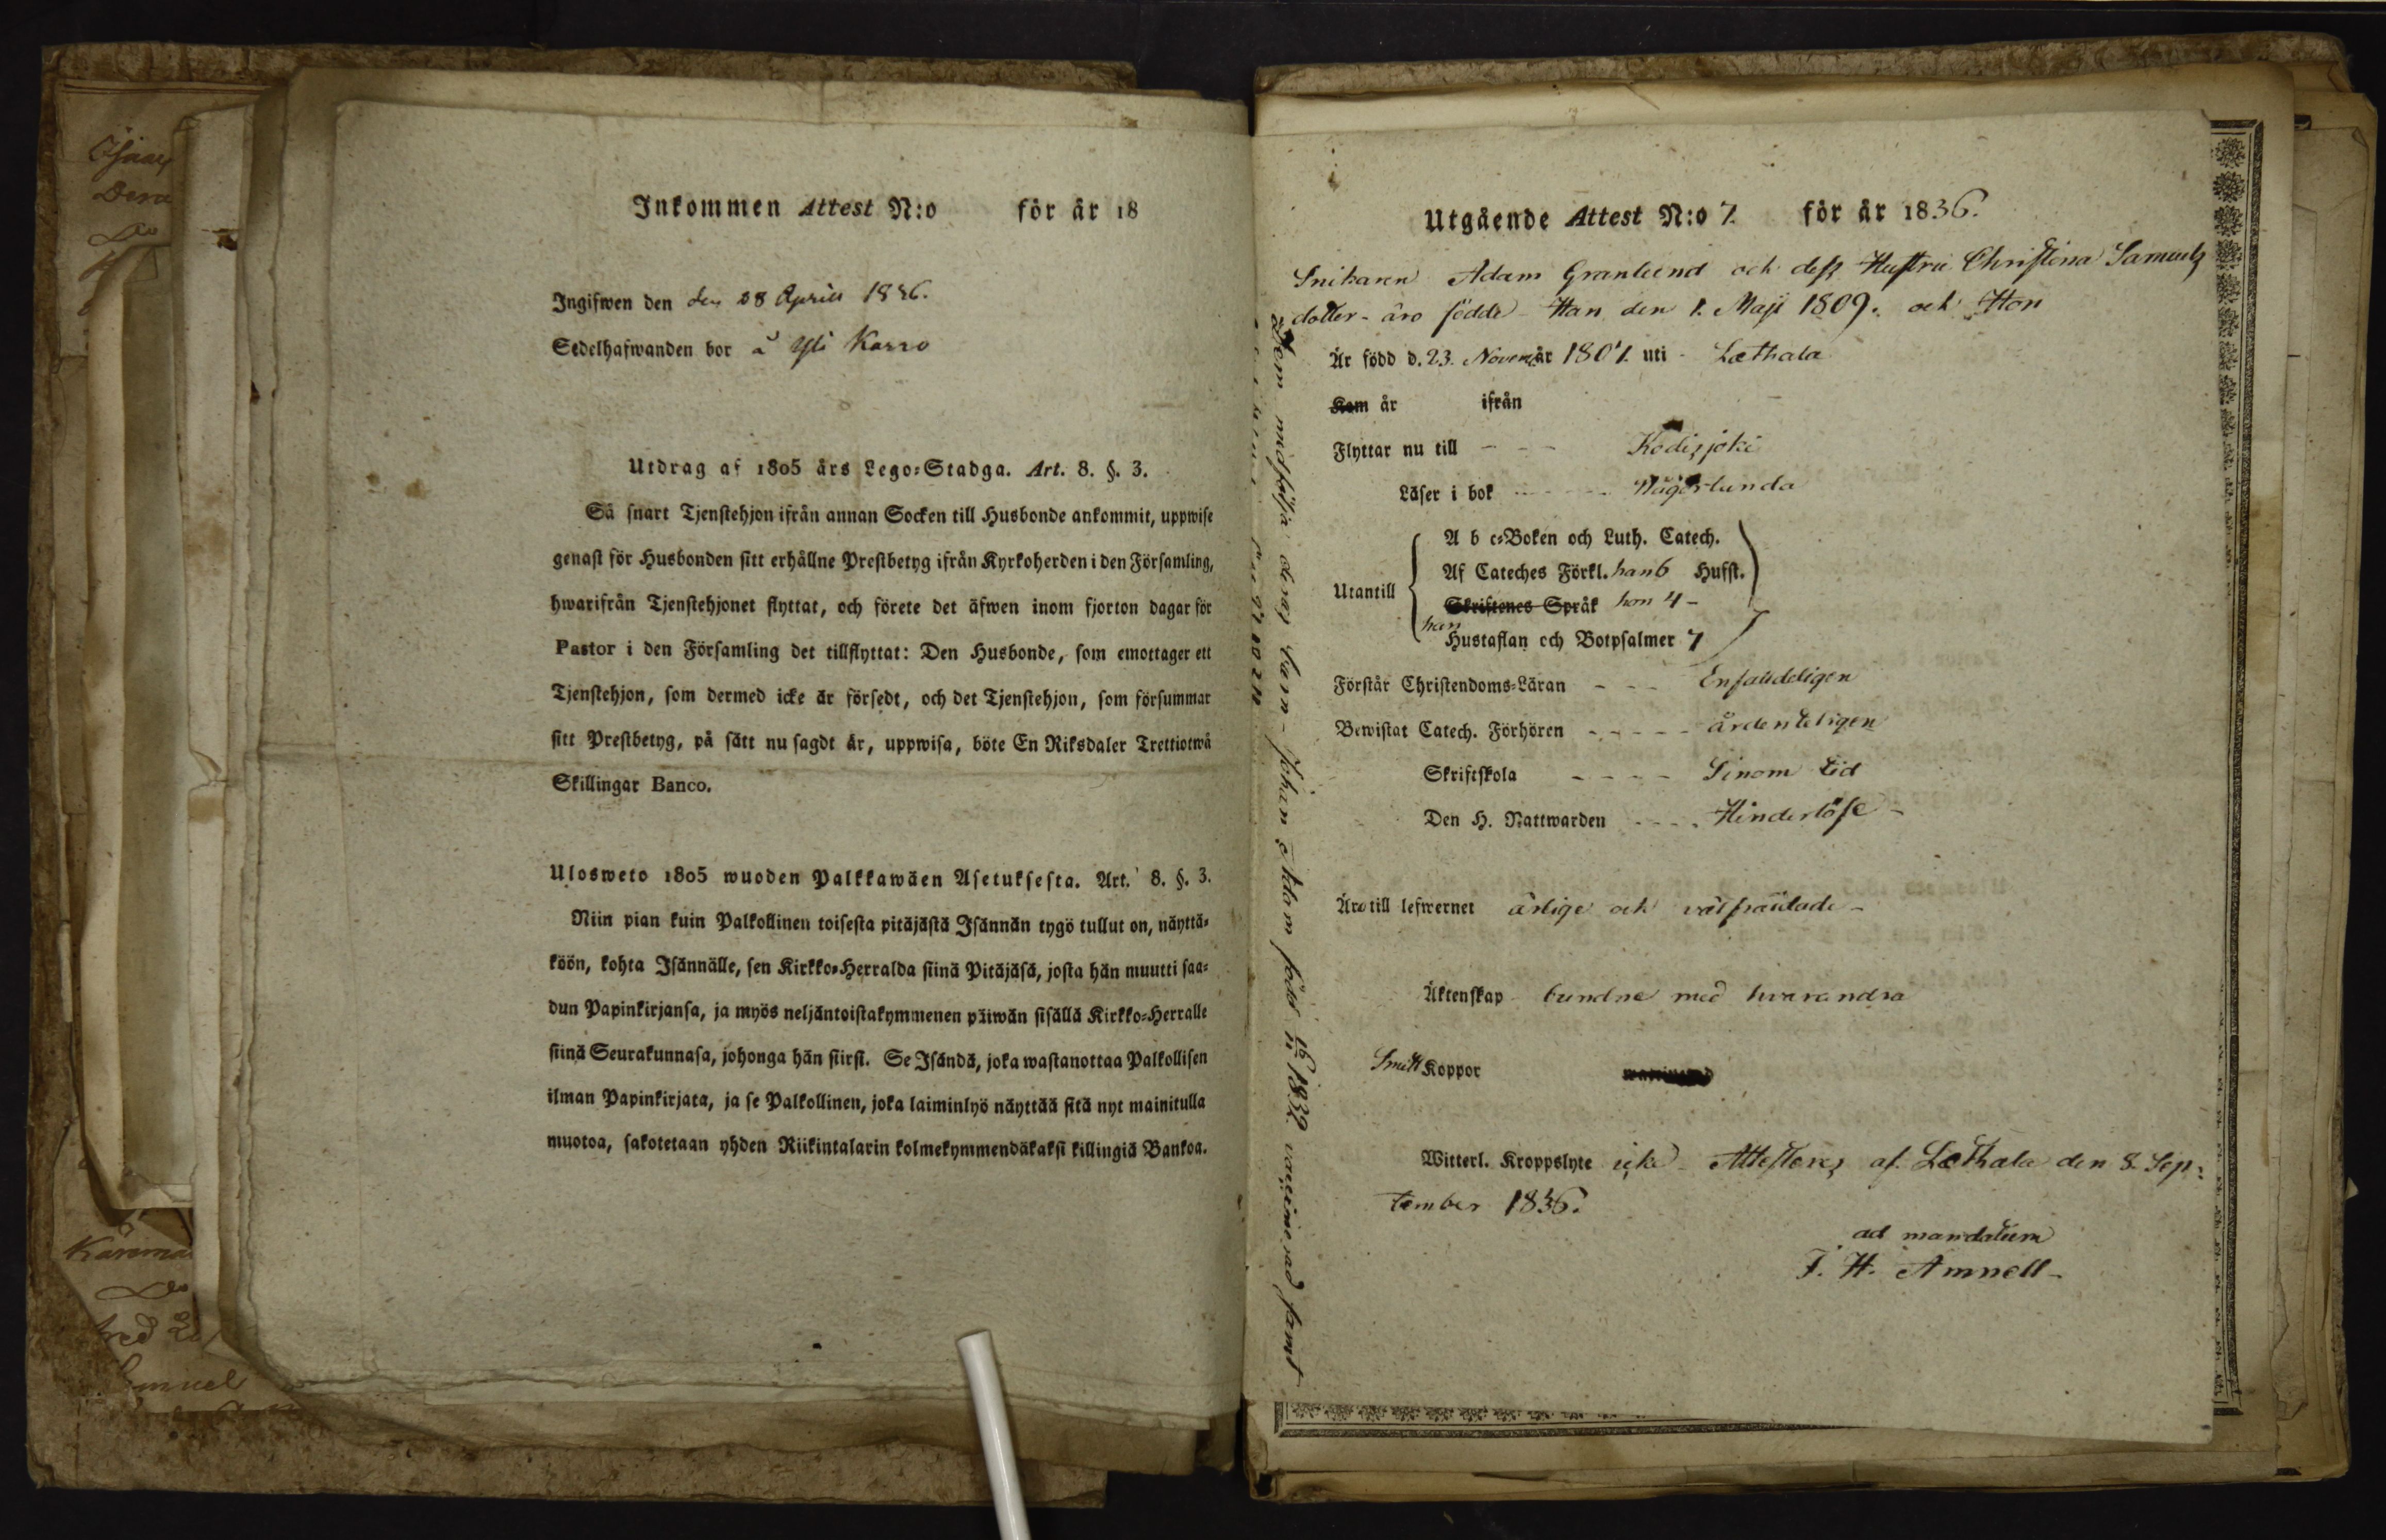 Inkommen Attest N:o för år 18
Ingifwen den den 28 April 1836.
Sedelhafwanden bor å Yli Karro
Utdrag af 1805 års Lego-Stadga. Art. 8. §. 3.
Så snart Tjenstehjon ifrån annan Socken till Husbonde ankommit, uppwise
genast för Husbonden sitt erhållne Prestbetyg ifrån Kyrkoherden i den Församling,
hwarifrån Tjenstehjonet flyttat, och förete det äfwen inom fjorton dagar för
Pastor i den Församling det tillflyttat: Den Husbonde, som emottager ett
Tjenstehjon, som dermed icke är försedt, och det Tjenstehjon, som försummar
sitt Prestbetyg, på sätt nu sagdt är, uppwisa, böte En Riksdaler Trettiotwå
Skillingar Banco.
Ulosweto 1805 wuoden Palkkawäen Asetuksesta. Art. 8. §. 3.
Niin pian kuin Palkollinen toisesta pitäjästä Isännän tygö tullut on, näyttä-
köön, kohta Isännälle, sen Kirkko-Herralda siinä Pitäjäsä, josta hän muutti saa-
dun Papinkirjansa, ja myös neljäntoistakymmenen päiwän sisällä Kirkko-Herralle
siinä Seurakunnasa, johonga hän siirsi. Se Isändä, joka wastanottaa Palkollisen
ilman Papinkirjata, ja se Palkollinen, joka laiminlyö näyttää sitä nyt mainitulla
muotoa, sakotetaan yhden Riikintalarin kolmekymmendäkaksi killingiä Bankoa.
Utgående Attest N:o 7. för år 1836.
Snikaren Adam Granlund och dess Hustru Christina Samuels
dotter - äro födde - Han den 1. Maji 1809. och Hon
Är född d. 23. Novem. år 1801. uti - Læthala
Kom år ifrån
Flyttar nu till - - - Kodisjoki
Läser i bok
Utantill
A b c-Boken och Luth. Catech.
Af Cateches Förkl. han 6 Hufst.
Skriftenes Språk hon 4 -
han
Hustaflan och Botpsalmer 7
Förstår Christendoms-Läran - - - Enfaldeligen
Bewistat Catech. Förhören - - - - - årdenteligen
Skriftskola - - - - Sinom tid
Den H. Nattwarden - - - - Hinderlöse -
Äro till lefwernet ärlige och välfräidade -
Äktenskap bundne med hvarandra
Smitt Koppor
Witterl. Kroppslyte icke - Attesteras af Læthala den 8. Sep:
tember 1836.
ad mandatum
F. H. Amnell -
Dem medfölja deras barn - Johan Adam född 1832. vaccinerad, samt